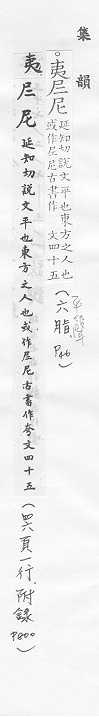 集韻
。夷𡰥尼延知切說文平也東方之人也
或作𡰥尼古書作
文四十五
(六脂
P46)
夷𡰥尼延知切說文平也東方之人也或作𡰥尼古書作夸文四十五
(四六頁一行.附錄
P800)